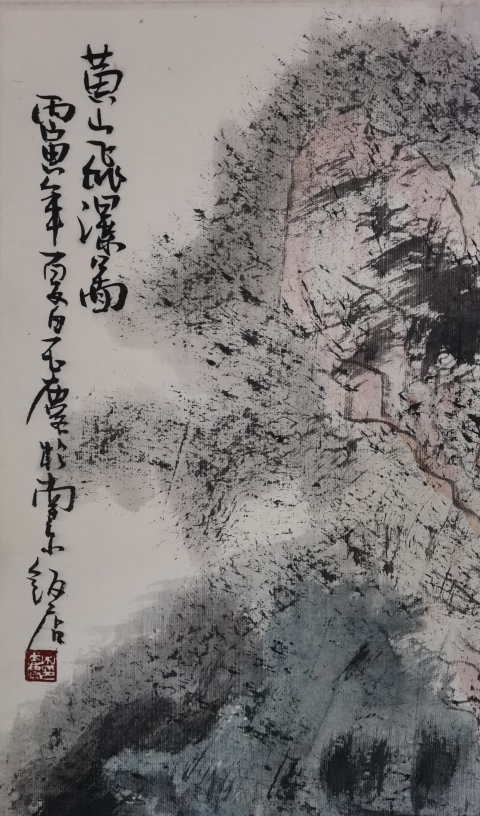 黄山飛瀑圖
丙寅年夏日於南京飯店